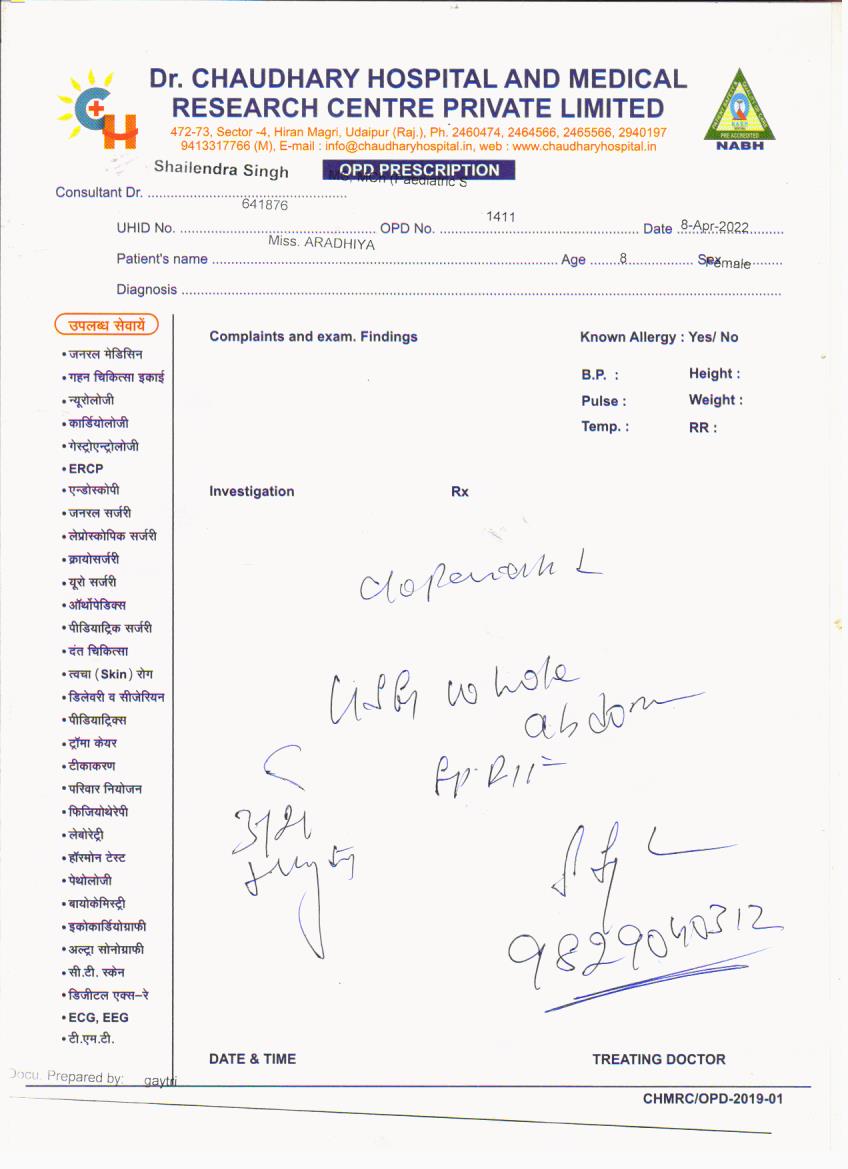 Dr. CHAUDHARY HOSPITAL AND MEDICAL
RESEARCH CENTRE PRIVATE LIMITED
472-73, Sector -4, Hiran Magri, Udaipur (Raj.), Ph. 2460474, 2464566, 2465566, 2940197
9413317766 (M), E-mail : info@chaudharyhospital.in, web : www.chaudharyhospital.in
NABH
Shailendra Singh
OPD PRESCRIPTION
MCh (Paediatric S
Consultant Dr.
641876
1411
UHID No. OPD No. Date 8-Apr-2022
Miss. ARADHIYA
Patient's name Age 8 Sex Female
Diagnosis
उपलब्ध सेवायें
• जनरल मेडिसिन
• गहन चिकित्सा इकाई
• न्यूरोलोजी
• कार्डियोलोजी
• गेस्ट्रोएन्ट्रोलोजी
• ERCP
• एन्डोस्कोपी
• जनरल सर्जरी
• लेप्रोस्कोपिक सर्जरी
• क्रायोसर्जरी
• यूरो सर्जरी
• ऑर्थोपेडिक्स
• पीडियाट्रिक सर्जरी
• दंत चिकित्सा
• त्वचा (Skin) रोग
• डिलेवरी व सीजेरियन
• पीडियाट्रिक्स
• ट्रॉमा केयर
• टीकाकरण
• परिवार नियोजन
• फिजियोथेरेपी
• लेबोरेट्री
• हॉरमोन टेस्ट
• पेथोलोजी
• बायोकेमिस्ट्री
• इकोकार्डियोग्राफी
• अल्ट्रा सोनोग्राफी
• सी.टी. स्केन
• डिजीटल एक्स-रे
• ECG, EEG
• टी.एम.टी.
Complaints and exam. Findings
Known Allergy : Yes/ No
B.P. : Height :
Pulse : Weight :
Temp. : RR :
Investigation Rx
USG whole
abdom
9829040312
DATE & TIME TREATING DOCTOR
Docu. Prepared by: gaytri
CHMRC/OPD-2019-01